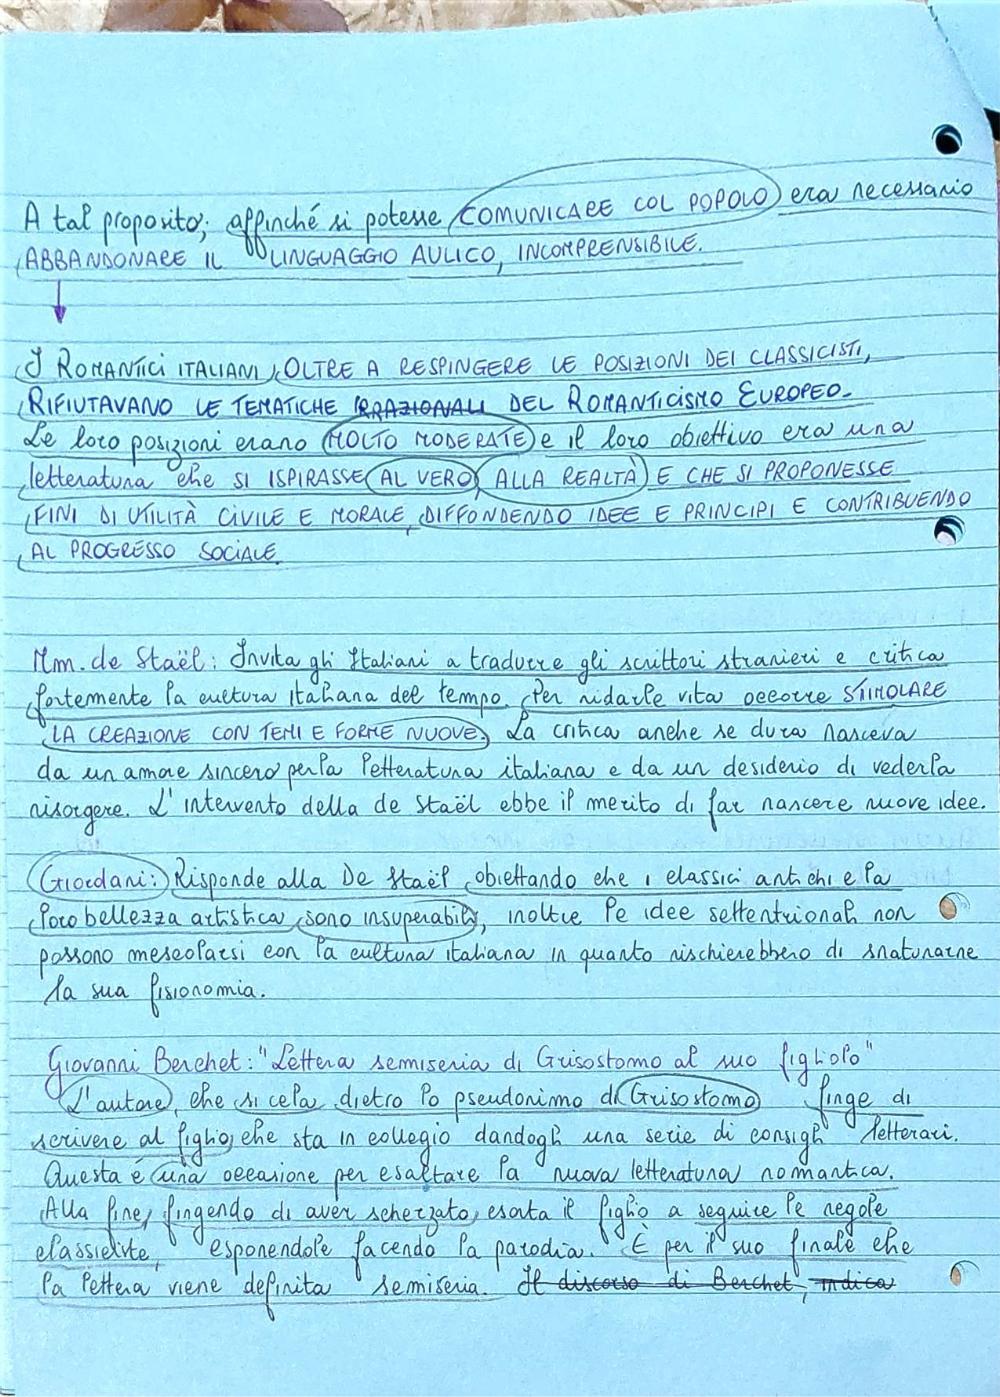 A tal proposito; affinché si potesse COMUNICARE COL POPOLO era necessario
ABBANDONARE IL LINGUAGGIO AULICO, INCOMPRENSIBILE.
I ROMANTICI ITALIANI, OLTRE A RESPINGERE LE POSIZIONI DEI CLASSICISTI,
RIFIUTAVANO LE TEMATICHE IRRAZIONALI DEL ROMANTICISMO EUROPEO.
Le loro posizioni erano MOLTO MODERATE e il loro obiettivo era una
letteratura che SI ISPIRASSE AL VERO, ALLA REALTÀ E CHE SI PROPONESSE
FINI DI UTILITÀ CIVILE E MORALE, DIFFONDENDO IDEE E PRINCIPI E CONTRIBUENDO
AL PROGRESSO SOCIALE.
Mm. de Staël: Invita gli Italiani a tradurre gli scrittori stranieri e critica
fortemente la cultura italiana del tempo. Per ridarle vita occorre STIMOLARE
LA CREAZIONE CON TEMI E FORME NUOVE. La critica anche se dura nasceva
da un amore sincero per la letteratura italiana e da un desiderio di vederla
risorgere. L'intervento della de Staël ebbe il merito di far nascere nuove idee.
Giordani: Risponde alla De Staël obiettando che i classici antichi e la
loro bellezza artistica sono insuperabili, inoltre le idee settentrionali non
possono mescolarsi con la cultura italiana in quanto rischierebbero di snaturarne
la sua fisionomia.
Giovanni Berchet: "Lettera semiseria di Grisostomo al suo figliolo"
L'autore, che si cela dietro lo pseudonimo di Grisostomo finge di
scrivere al figlio, che sta in collegio dandogli una serie di consigli letterari.
Questa é una occasione per esaltare la nuova letteratura romantica.
Alla fine, fingendo di aver scherzato, esorta il figlio a seguire le regole
classiciste, esponendole facendo la parodia. È per il suo finale che
la lettera viene definita semiseria. Il discorso di Berchet, indica